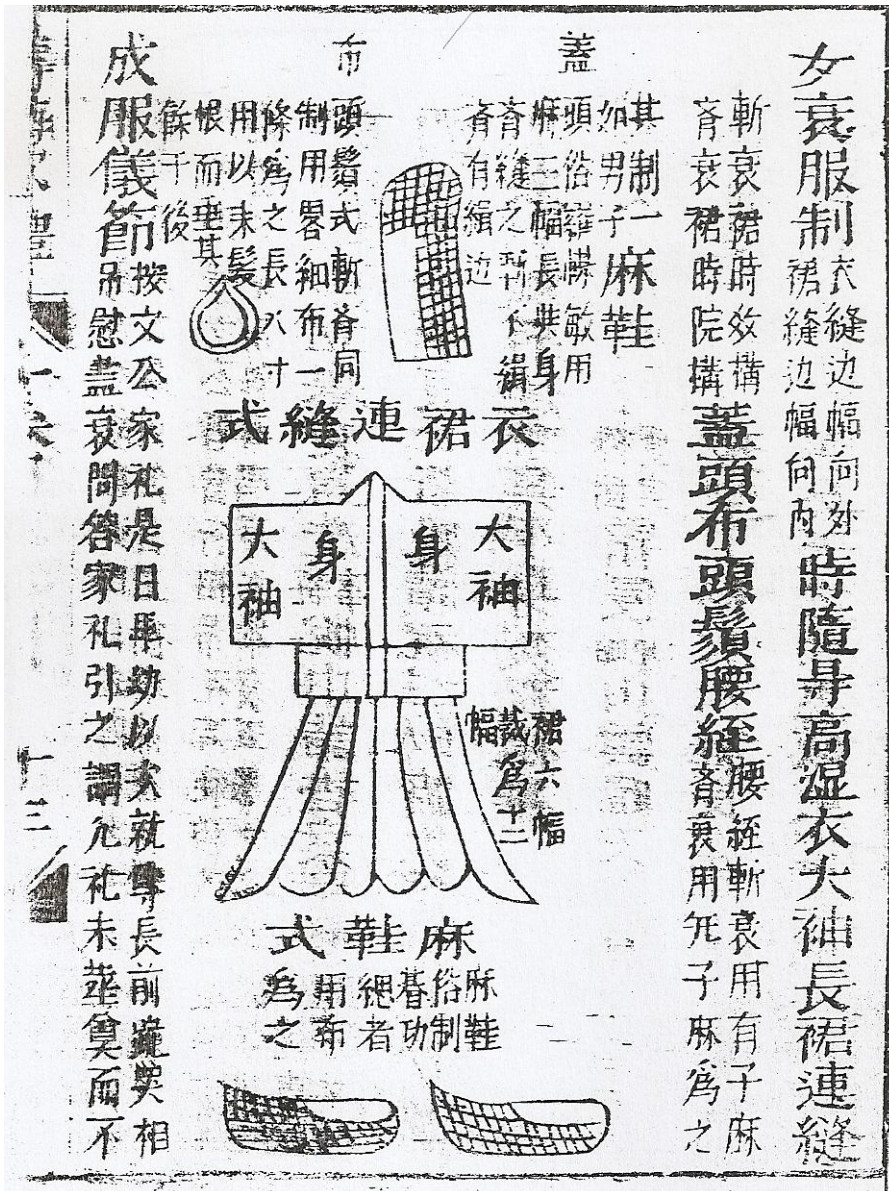 女衰服制
衣縫边幅向外
裙縫边幅向内
時隨身高湿衣大袖長裙連縫
斬衰裙時效搆
斉衰裙時院搆
蓋頭布頭鬚腰絰
腰絰斬衰用有子麻
斉衰用旡子麻爲之
其制一麻鞋
如男子
蓋
頭俗
敏用
麻三幅長與身
斉縫之斬不緝
斉有緝边
布
頭鬚式斬斉同
制用畧細布一
條爲之長八寸
用以末髪
根而垂其
餘于後
衣裙連縫式
大袖
身
身
大袖
裙六幅
裁爲十二
幅
麻鞋式
麻鞋
俗制
朞功
緦者
用布
爲之
成服儀節
按文公家礼是日卑幼以次就尊長前跪哭相
吊慰盖哀問答家礼引之謂凢礼未塟奠而不
十三